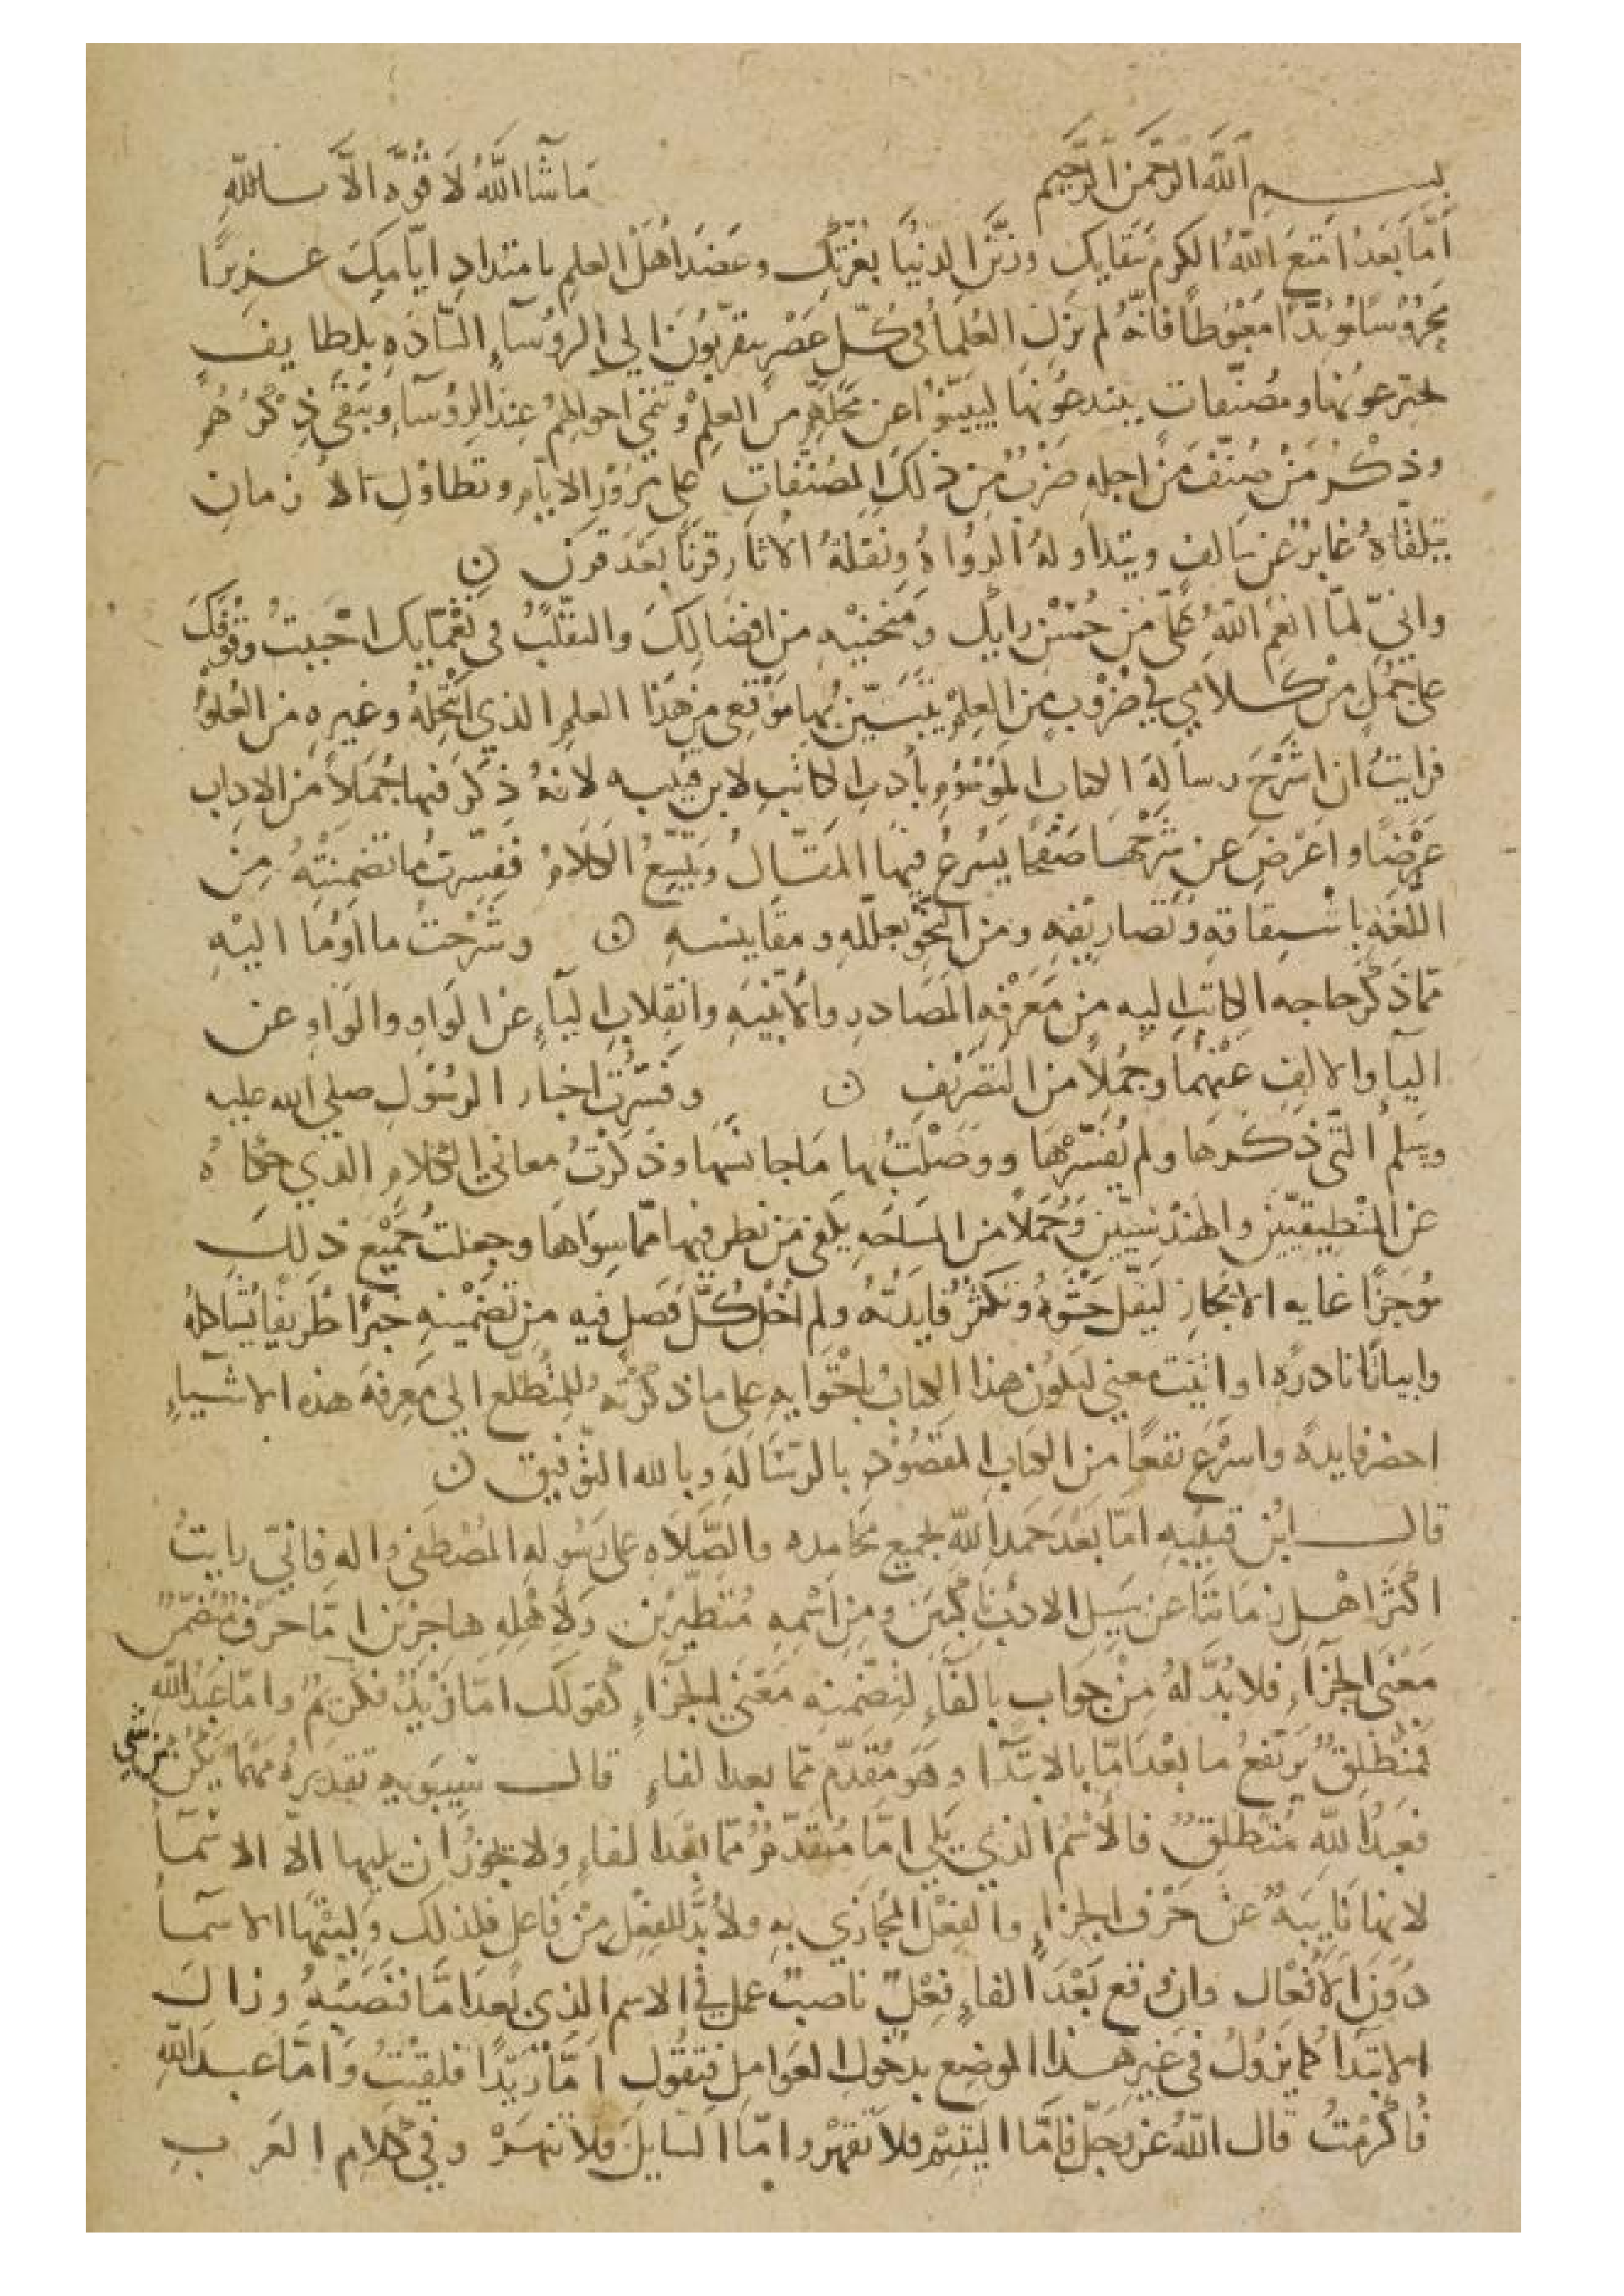 بسم الله الرحمن الرحيم ما شا الله لا قوه الا بالله
أما بعد أمتع الله الكرم ببقايك وزين الدنيا بغرتك وعضد أهل العلم بامتداد ايامك عزيزا
محروسا مويدا مغبوطا فانه لم تزل العلما في كل عصر يتقربون الي الروساء الساده بلطايف
يخترعونها ومصنفات يبتدعونها ليبينوا عن محلهم من العلم وتنمي احوالهم عند الروسآء ويبقى ذكرهم
وذكر من صنف من اجله ضرب من ذلك المصنفات على مرور الايام وتطاول الازمان
يتلقاه غابر عن سالف ويتداوله الرواه ونقلة الاثار قرنا بعد قرن ن
واني لما انعم الله علي من حسن رايك ومنحنيه من افضالك والتقلب في نعمايك احببت وقوفك
على جمل من كلامي في ضروب من العلم يتبين بها موقعي من هذا العلم الذي انتحله وغيره من العلوم
فرايت ان اشرح رسالة الكتاب الموسوم بأدب الكاتب لابن قتيبه لانه ذكر فيها جملا من الاداب
عرضا واعرض عن شرحها صفحا يسرح فيها المقال ويتسع الكلام ففسرت ما تضمنته من
اللغه باشتقاقه وتصاريفه ومن النحو بعلله ومقاييسه ن وشرحت ما اوما اليه
مما ذكر حاجه الكاتب اليه من معرفه المصادر والابنيه وانقلاب اليآء عن الواو والواو عن
اليآء والالف عنهما وجملا من التصريف ن وفسرت اخبار الرسول صلى الله عليه
وسلم التي ذكرها ولم يفسرها ووصلت بها ما جانسها وذكرت معاني الكلام الذي حكاه
عن المنطيقيين والهندسيين وجملا من المساحه يكفي من نظر فيها مما سواها وجعلت جميع ذلك
موجزا غايه الايجاز ليقل حشوه وتكثر فايدته ولم اخل كل فصل فيه من تضمينه خبرا طريفا يشاكله
وابياتا نادره او ابيت معنى ليكون هذا الكتاب باحتوايه على ما ذكرته للمتطلع الي معرفة هذه الاشياء
احضر فايدة واسرع نفعا من الكتاب المقصود بالرسالة وبالله التوفيق ن
قال ابن قتيبه اما بعد حمد الله بجميع محامده والصلاه على رسوله المصطفى واله فاني رايت
اكثر اهل زماننا عن سبيل الادب ناكبين ومن اسمه متطيرين ولاهله هاجرين اما حرف متضمن
معنى الجزاء فلا بد له من جواب بالفاء لتضمنه معنى الجزاء كقولك اما زيد فكريم واما عبد الله
فمنطلق يرتفع ما بعد اما بالابتدا وهو مقدم مما بعد الفاء قال سيبويه تقديره مهما يكن من شي
فعبد الله منطلق فالاسم الذي يلي اما متقدم مما بعد الفاء ولا يجوز ان يليها الا الاسمآ
لانها نايبه عن حرف الجزاء والفعل المجازى به ولا بد للفعل من فاعل فلذلك وليتها الاسمآ
دون الافعال وان وقع بعد الفاء فعل ناصب عمل في الاسم الذي بعد اما فنصبه وزال
الابتدا كما يزول في غير هذا الموضع بدخول العوامل فتقول اما زيدا فلقيت واما عبد الله
فاكرمت قال الله عز وجل فاما اليتيم فلا تقهر واما السايل فلا تنهر وفي كلام العرب